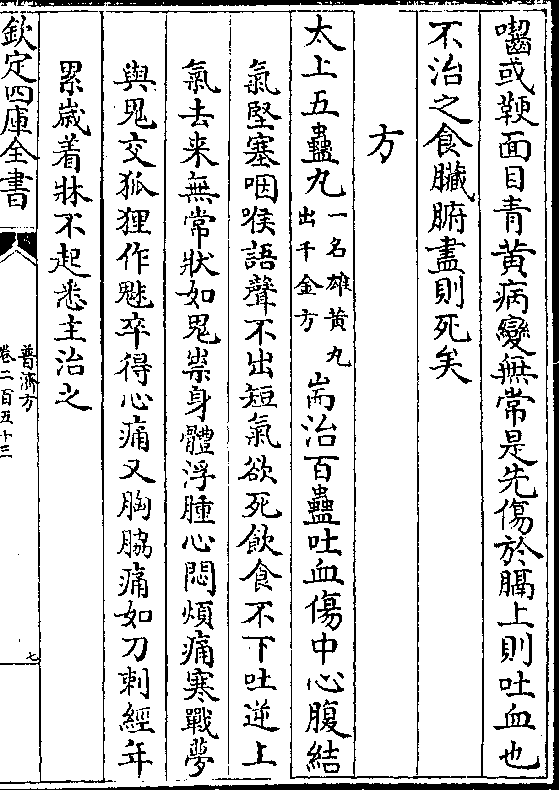 嚙或鞕面目青黃病變無常是先傷於膈上則吐血也
不治之食臟腑盡則死矣
方
太上五蠱丸一名雄黃丸出千金方耑治百蠱吐血傷中心腹結
氣堅塞咽喉語聲不出短氣欲死飲食不下吐逆上
氣去来無常狀如鬼祟身體浮腫心悶煩痛寒戰夢
與鬼交狐狸作魅卒得心痛又胸脇痛如刀刺經年
累歲着牀不起悉主治之
欽定四庫全書
普濟方
卷二百五十三
七